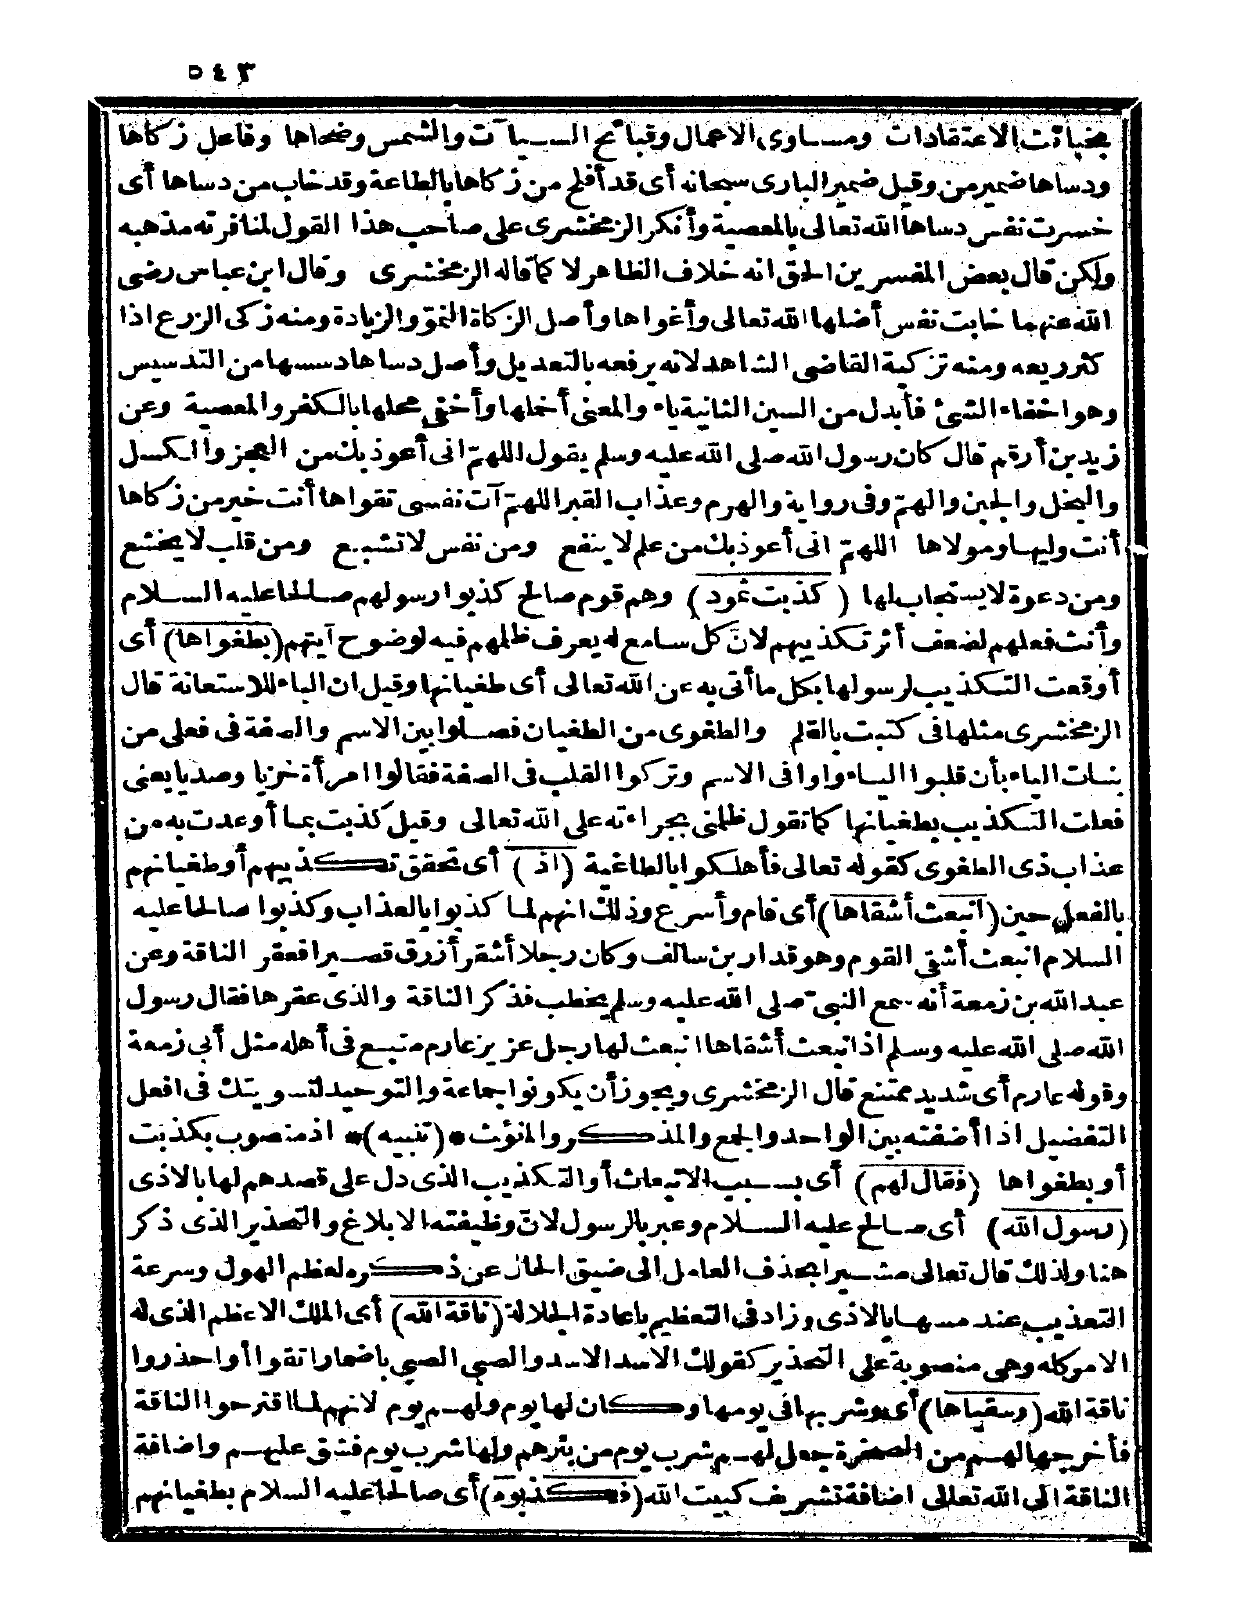 ٥٤٣
بخبائث الاعتقادات ومساوى الاعمال وقبائح السيات والشمس وضحاها وفاعل زكاها
ودساها ضمير من وقيل ضمير البارى سبحانه أى قد أفلح من زكاها بالطاعة وقد خاب من دساها أى
خسرت نفس دساها الله تعالى بالمعصية وأنكر الزمخشرى على صاحب هذا القول لمنافرته مذهبه
ولكن قال بعض المفسرين الحق انه خلاف الظاهر لا كما قاله الزمخشرى وقال ابن عباس رضى
الله عنهما خابت نفس أضلها الله تعالى وأغواها وأصل الزكاة النمو والزيادة ومنه زكى الزرع اذا
كثر ريعه ومنه تزكية القاضى الشاهد لانه يرفعه بالتعديل وأصل دساها دسسها من التدسيس
وهو اخفاء الشئ فأبدل من السين الثانية ياء والمعنى أخملها وأخفى محلها بالكفر والمعصية وعن
زيد بن أرقم قال كان رسول الله صلى الله عليه وسلم يقول اللهمّ انى أعوذ بك من العجز والكسل
والبخل والجبن والهمّ وفى رواية والهرم وعذاب القبر اللهمّ آت نفسى تقواها أنت خير من زكاها
أنت وليها ومولاها اللهمّ انى أعوذ بك من علم لا ينفع ومن نفس لا تشبع ومن قلب لا يخشع
ومن دعوة لا يستجاب لها (كذبت ثمود) وهم قوم صالح كذبوا رسولهم صالحا عليه السلام
وأنث فعلهم لضعف أثر تكذيبهم لانّ كل سامع له يعرف ظلمهم فيه لوضوح آيتهم (بطغواها) أى
أوقعت التكذيب لرسولها بكل ما أتى به عن الله تعالى أى طغيانها وقيل ان الباء للاستعانة قال
الزمخشرى مثلها فى كتبت بالقلم والطغوى من الطغيان فصلوا بين الاسم والصفة فى فعلى من
بنات الياء بأن قلبوا الياء واوا فى الاسم وتركوا القلب فى الصفة فقالوا امرأة خزيا وصديا يعنى
فعلت التكذيب بطغيانها كما تقول ظلمنى بجراءته على الله تعالى وقيل كذبت بما أوعدت به من
عذاب ذى الطغوى كقوله تعالى فأهلكوا بالطاغية (اذ) أى تحقق تكذيبهم أو طغيانهم
بالفعل حين (انبعث أشقاها) أى قام وأسرع وذلك انهم لما كذبوا بالعذاب وكذبوا صالحا عليه
السلام انبعث أشقى القوم وهو قدار بن سالف وكان رجلا أشقر أزرق قصيرا فعقر الناقة وعن
عبد الله بن زمعة أنه سمع النبىّ صلى الله عليه وسلم يخطب فذكر الناقة والذى عقرها فقال رسول
الله صلى الله عليه وسلم اذ انبعث أشقاها انبعث لها رجل عزيز عارم متبع فى أهله مثل أبى زمعة
وقوله عارم أى شديد ممتنع قال الزمخشرى ويجوز أن يكونوا جماعة والتوحيد لتسويتك فى افعل
التفضيل اذا أضفته بين الواحد والجمع والمذكر والمؤنث *(تنبيه)* اذ منصوب بكذبت
أو بطغواها (فقال لهم) أى بسبب الانبعاث أو التكذيب الذى دل على قصدهم لها بالاذى
(رسول الله) أى صالح عليه السلام وعبر بالرسول لانّ وظيفته الابلاغ والتحذير الذى ذكر
هنا ولذلك قال تعالى مشيرا بحذف العامل الى ضيق الحال عن ذكره لعظم الهول وسرعة
التعذيب عند مسها بالاذى وزاد فى التعظيم باعادة الجلالة (ناقة الله) أى الملك الاعظم الذى له
الامر كله وهى منصوبة على التحذير كقولك الاسد الاسد والصبى الصبى باضمار اتقوا أو احذروا
ناقة الله (وسقياها) أى وشربها فى يومها وكان لها يوم ولهم يوم لانهم لما اقترحوا الناقة
فأخرجها لهم من الصخرة جعل لهم شرب يوم من بئرهم ولها شرب يوم فشق عليهم واضافة
الناقة الى الله تعالى اضافة تشريف كبيت الله (فكذبوه) أى صالحا عليه السلام بطغيانهم